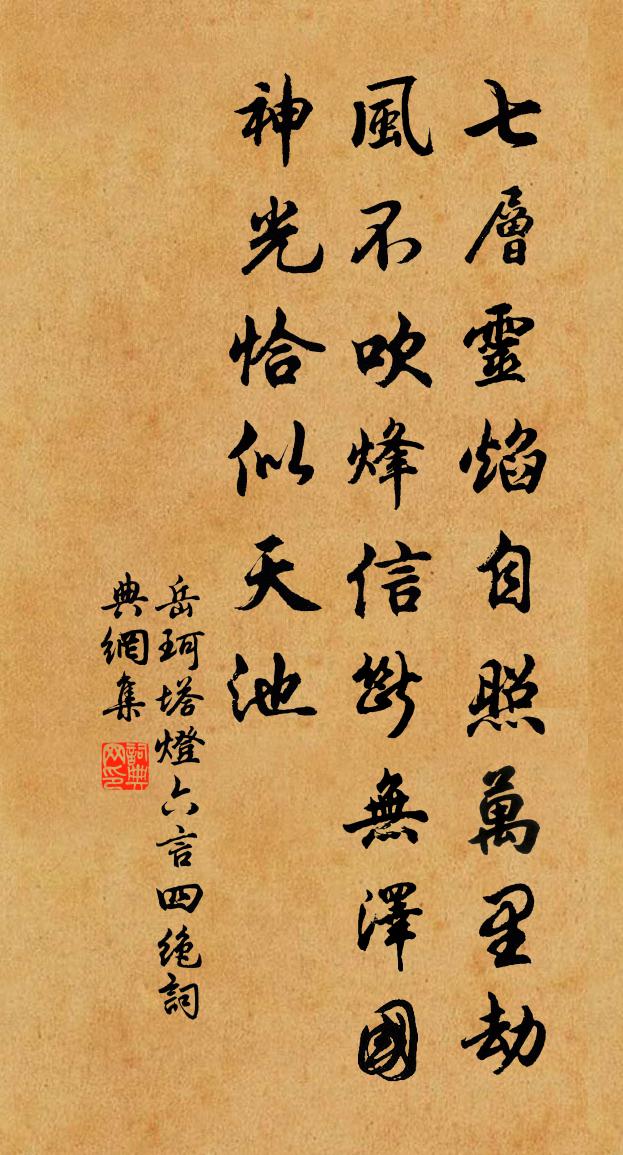 七層靈焰自照萬里劫
風不吹烽信斷無澤國
神光恰似天池
岳珂塔燈六言四絶詞
典網集
詞典网印